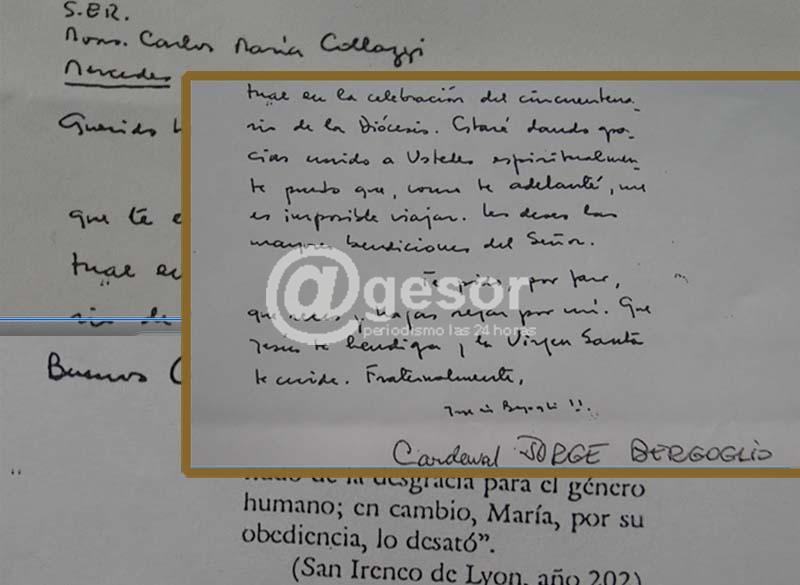 S.E.R.
Mons. Carlos María Collazzi
Mercedes
Querido
que te e
tual en
rio de
Buenos
tual en la celebración del cincuentena-
rio de la Diócesis. Estaré dando gra-
cias unido a Ustedes espiritualmen-
te puesto que, como te adelanté, me
es imposible viajar. Les deseo las
mayores bendiciones del Señor.
Te pido, por favor,
que reces y hagas rezar por mí. Que
Jesús te bendiga y la Virgen Santa
te cuide. Fraternalmente,
Cardenal JORGE BERGOGLIO
@gesor
periodismo las 24 horas
de la desgracia para el género
humano; en cambio, María, por su
obediencia, lo desató”.
(San Ireneo de Lyon, año 202)